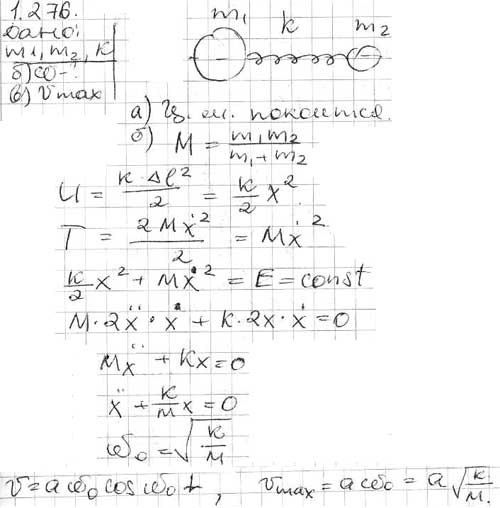 1.276.
Дано:
m₁, m₂, k
б) ω - ?
в) v max
m₁ k m₂
а) Ц. м. покоится.
б) M = m₁m₂ / m₁+m₂
U = k·Δl² / 2 = k/2 x².
T = 2Mẋ² / 2 = Mẋ²
k/2 x² + Mẋ² = E = const
M·2ẍ·ẋ + k·2x·ẋ = 0
Mẍ + kx = 0
ẍ + k/M x = 0
ω₀ = √(k/M)
v = aω₀ cos ω₀t, vmax = aω₀ = a√(k/M).